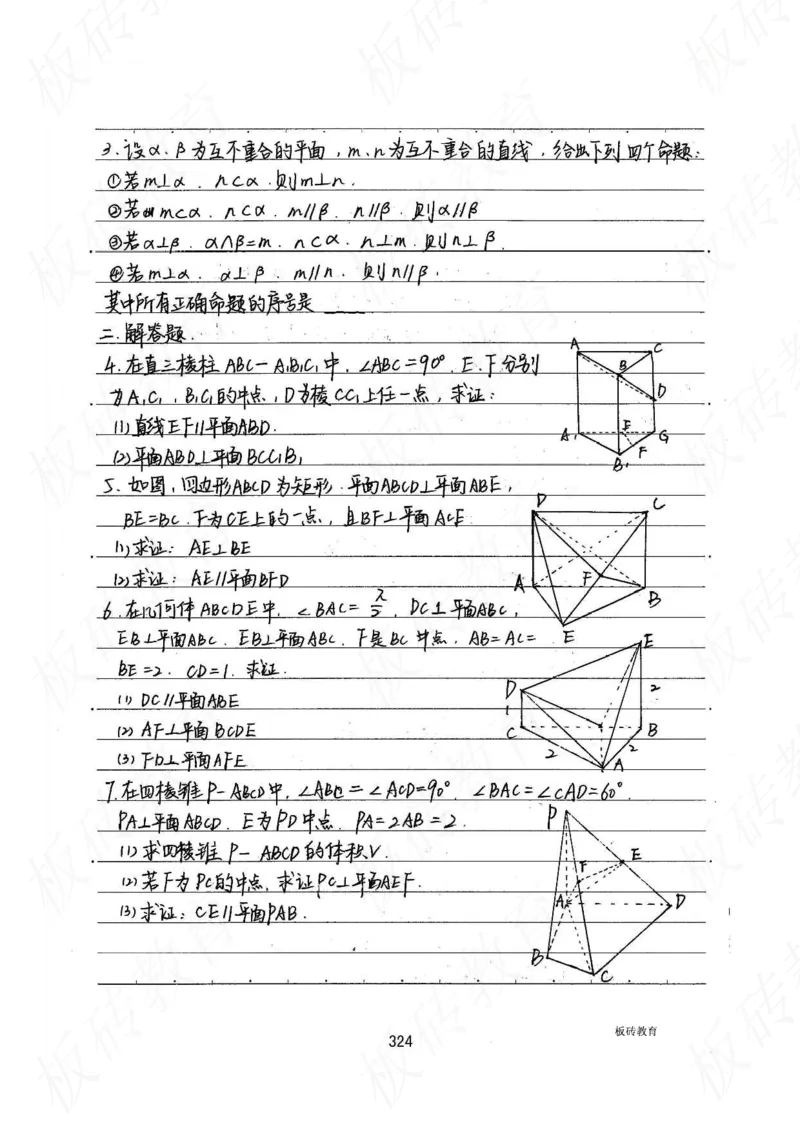 3.设α、β为互不重合的平面，m、n为互不重合的直线，给出下列四个命题：
①若m⊥α、n⊂α.则m⊥n.
②若m⊂α、n⊂α、m//β、n//β.则α//β
③若α⊥β、α∩β=m、n⊂α、n⊥m.则n⊥β.
④若m⊥α、α⊥β、m//n、则n//β.
其中所有正确命题的序号是 ____
二.解答题.
4.在直三棱柱ABC-A₁B₁C₁中，∠ABC=90°，E、F分别
为A₁C₁、B₁C₁的中点，D为棱CC₁上任一点，求证：
(1)直线EF//平面ABD.
(2)平面ABD⊥平面BCC₁B₁
A
C
B
D
A₁
E
C₁
F
B₁
5.如图，四边形ABCD为矩形.平面ABCD⊥平面ABE，
BE=BC.F为CE上的一点，且BF⊥平面ACE.
(1)求证：AE⊥BE
(2)求证：AE//平面BFD
D
C
A
F
B
E
6.在几何体ABCDE中，∠BAC=π/2，DC⊥平面ABC，
EB⊥平面ABC、EB⊥平面ABC.F是BC中点、AB=AC=
BE=2、CD=1.求证.
(1)DC//平面ABE
(2)AF⊥平面BCDE
(3)FD⊥平面AFE
E
D
1
2
C
B
2
2
A
7.在四棱锥P-ABCD中，∠ABC=∠ACD=90°、∠BAC=∠CAD=60°.
PA⊥平面ABCD、E为PD中点、PA=2AB=2.
(1)求四棱锥P-ABCD的体积V.
(2)若F为PC的中点，求证PC⊥平面AEF.
(3)求证：CE//平面PAB.
P
E
F
A
D
B
C
324
板砖教育